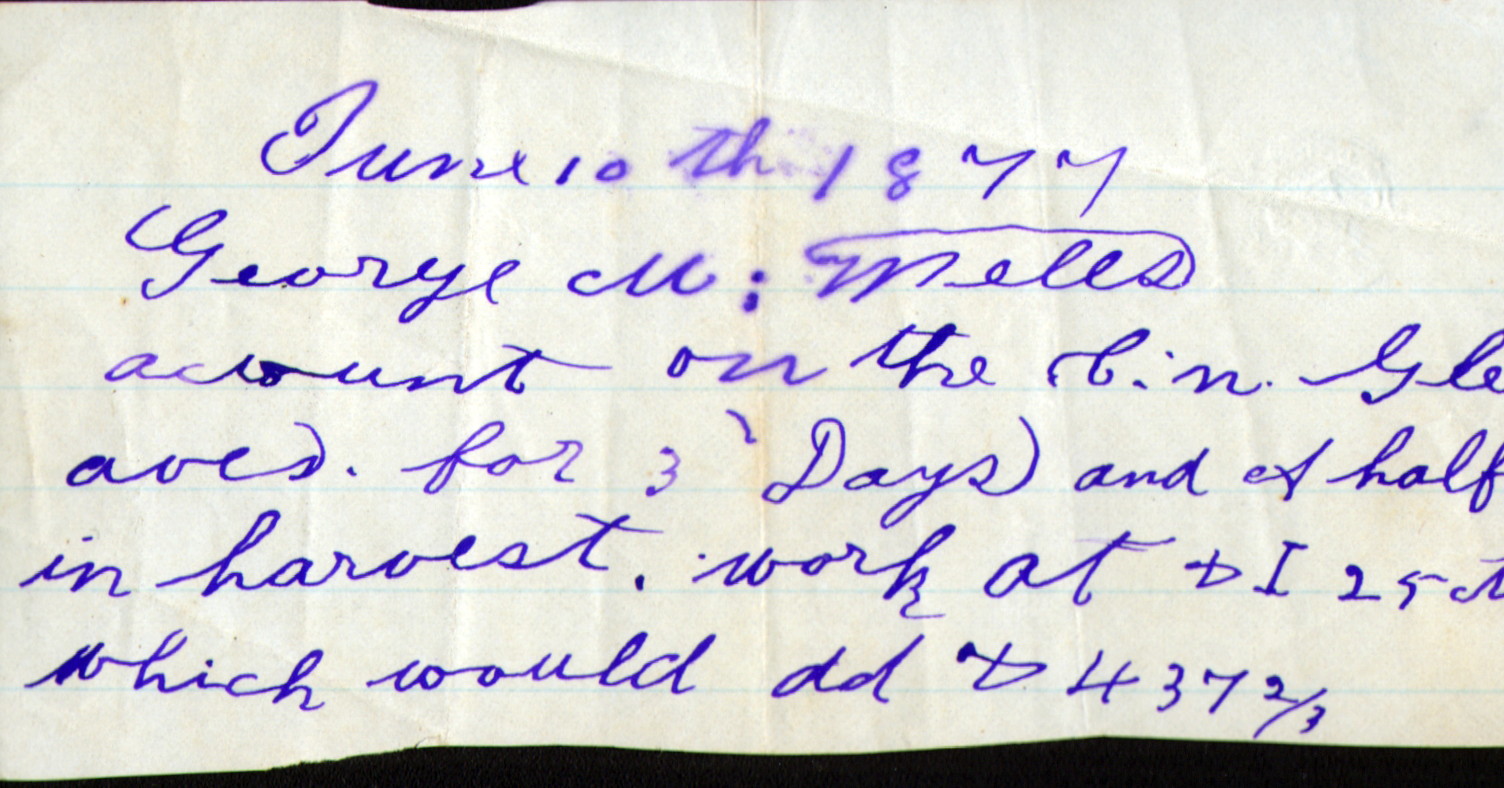 June 10 th 1877
George M: Wells
acount on the C. n. Gle
aves. for 3 Days and A half
in harvest. work at $ I 25 ct
which would dd $ 4 37 2/3